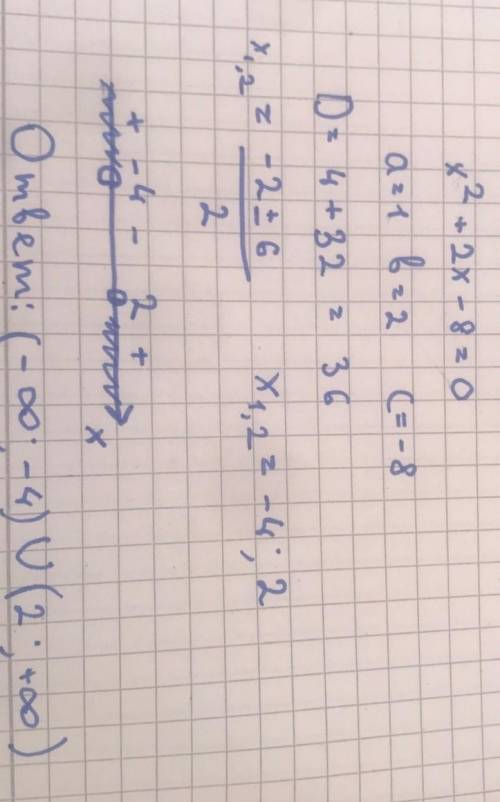 x² + 2x - 8 = 0
a = 1 b = 2 c = -8
D = 4 + 32 = 36
x₁,₂ = (-2 ± 6)/2 x₁,₂ = -4; 2
+ -4 - 2 +
x
Ответ: (-∞; -4) ∪ (2; +∞)